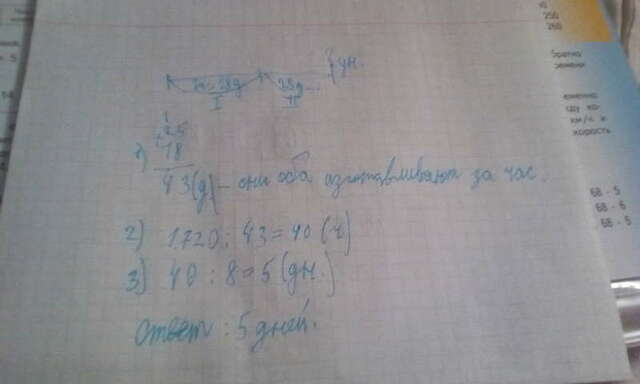 дн.
I
II
1
25
1) 18
43(д) - они оба изготавливают за час.
2) 1720 : 43 = 40 (ч)
3) 40 : 8 = 5 (дн.)
Ответ : 5 дней.
250
260
братно
ремени
еменно
км/ч и
корость
68 - 5
68 - 6
68 - 5